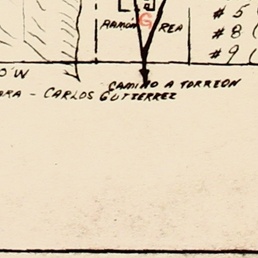 # 5
G
RAMON REA
# 8 (
# 9 (
OW
CAMINO A TORREON
ARA - CARLOS GUTIERREZ